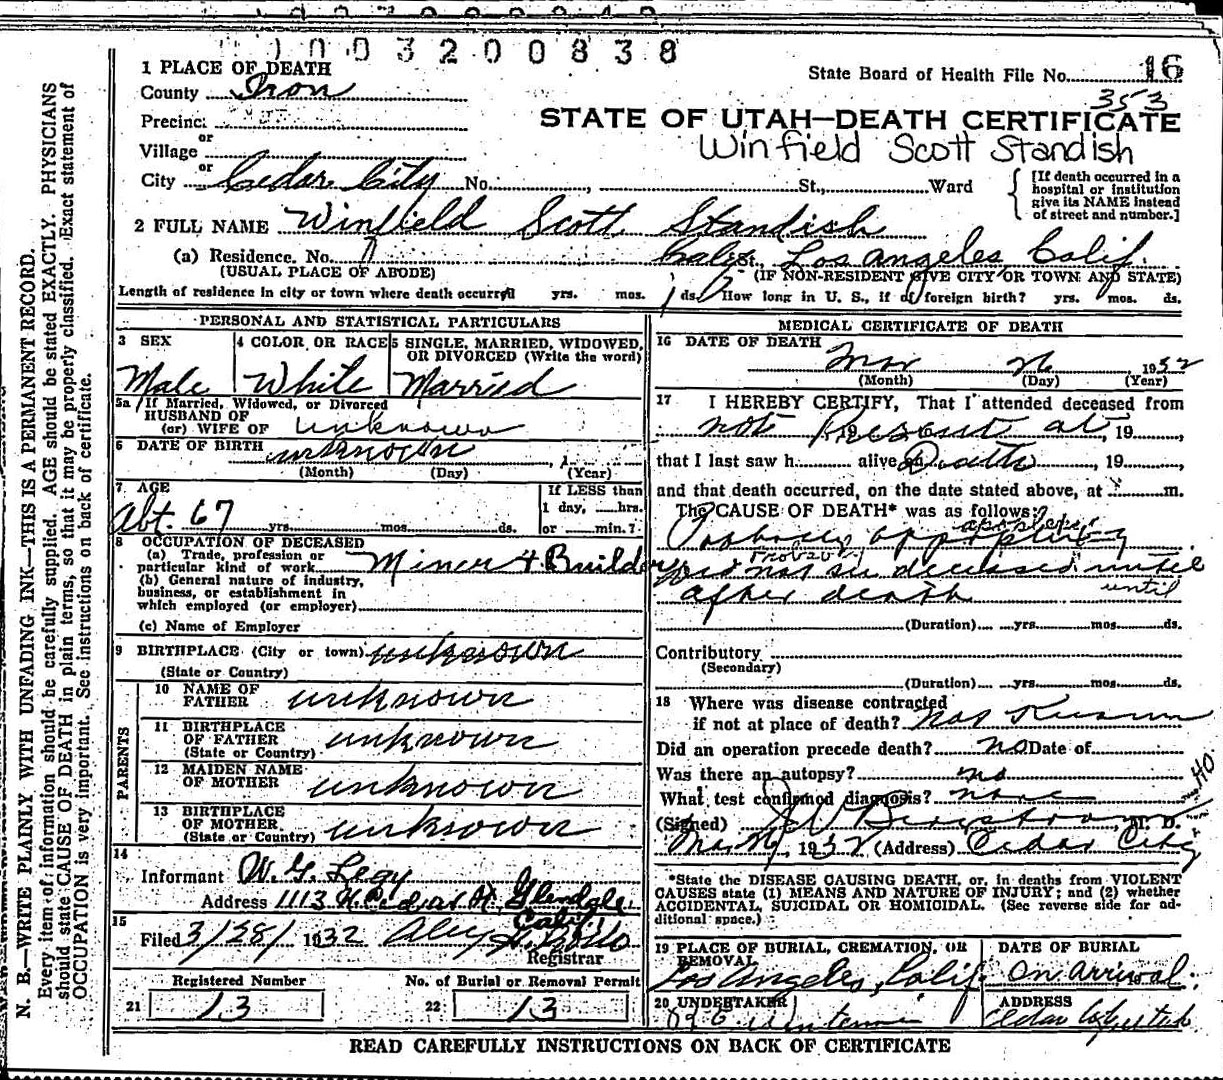 0 0 3 2 0 0 8 3 8
1 PLACE OF DEATH
County Iron
State Board of Health File No. 16
353
Precinct
or
Village
or
City Cedar City No. , St., Ward
STATE OF UTAH—DEATH CERTIFICATE
Winfield Scott Standish
[If death occurred in a
hospital or institution
give its NAME instead
of street and number.]
2 FULL NAME Winfield Scott Standish
(a) Residence. No. St., Los Angeles Calif.
(USUAL PLACE OF ABODE) (IF NON-RESIDENT GIVE CITY OR TOWN AND STATE)
Length of residence in city or town where death occurred yrs. mos. ds. How long in U. S., if of foreign birth? yrs. mos. ds.
PERSONAL AND STATISTICAL PARTICULARS
3 SEX
Male
4 COLOR OR RACE
White
5 SINGLE, MARRIED, WIDOWED,
OR DIVORCED (Write the word)
Married
5a If Married, Widowed, or Divorced
HUSBAND OF
(or) WIFE OF unknown
6 DATE OF BIRTH unknown, 1
(Month) (Day) (Year)
7 AGE
Abt. 67 yrs. mos. ds.
If LESS than
1 day, hrs.
or min.?
8 OCCUPATION OF DECEASED
(a) Trade, profession or
particular kind of work Miner & Builder
(b) General nature of industry,
business, or establishment in
which employed (or employer)
(c) Name of Employer
9 BIRTHPLACE (City or town) unknown
(State or Country)
PARENTS
10 NAME OF
FATHER unknown
11 BIRTHPLACE
OF FATHER unknown
(State or Country)
12 MAIDEN NAME
OF MOTHER unknown
13 BIRTHPLACE
OF MOTHER unknown
(State or Country)
14
Informant W. G.
Address 1113 Glendale
Calif.
15
Filed 3/28/ 1932
Registrar
Registered Number
21 13
No. of Burial or Removal Permit
22 13
MEDICAL CERTIFICATE OF DEATH
16 DATE OF DEATH
Mar 26 1932
(Month) (Day) (Year)
17 I HEREBY CERTIFY, That I attended deceased from
not Present at, 19 ,
that I last saw h alive on Death, 19 ,
and that death occurred, on the date stated above, at m.
The CAUSE OF DEATH* was as follows:
apoplexy
Probably apoplexy
Probably
Did not see deceased until
after death until
(Duration) yrs. mos. ds.
Contributory
(Secondary)
(Duration) yrs. mos. ds.
18 Where was disease contracted
if not at place of death? not Known
Did an operation precede death? no Date of
Was there an autopsy? no
What test confirmed diagnosis? none
(Signed) , M. D.
1932 (Address) Cedar City
*State the DISEASE CAUSING DEATH, or, in deaths from VIOLENT
CAUSES state (1) MEANS AND NATURE OF INJURY; and (2) whether
ACCIDENTAL, SUICIDAL OR HOMICIDAL. (See reverse side for ad-
ditional space.)
19 PLACE OF BURIAL, CREMATION, OR
REMOVAL
Los Angeles, Calif.
DATE OF BURIAL
On arrival.
20 UNDERTAKER
ADDRESS
Cedar City Utah
READ CAREFULLY INSTRUCTIONS ON BACK OF CERTIFICATE
N. B.—WRITE PLAINLY WITH UNFADING INK—THIS IS A PERMANENT RECORD.
Every item of information should be carefully supplied. AGE should be stated EXACTLY. PHYSICIANS
should state CAUSE OF DEATH in plain terms, so that it may be properly classified. Exact statement of
OCCUPATION is very important. See instructions on back of certificate.